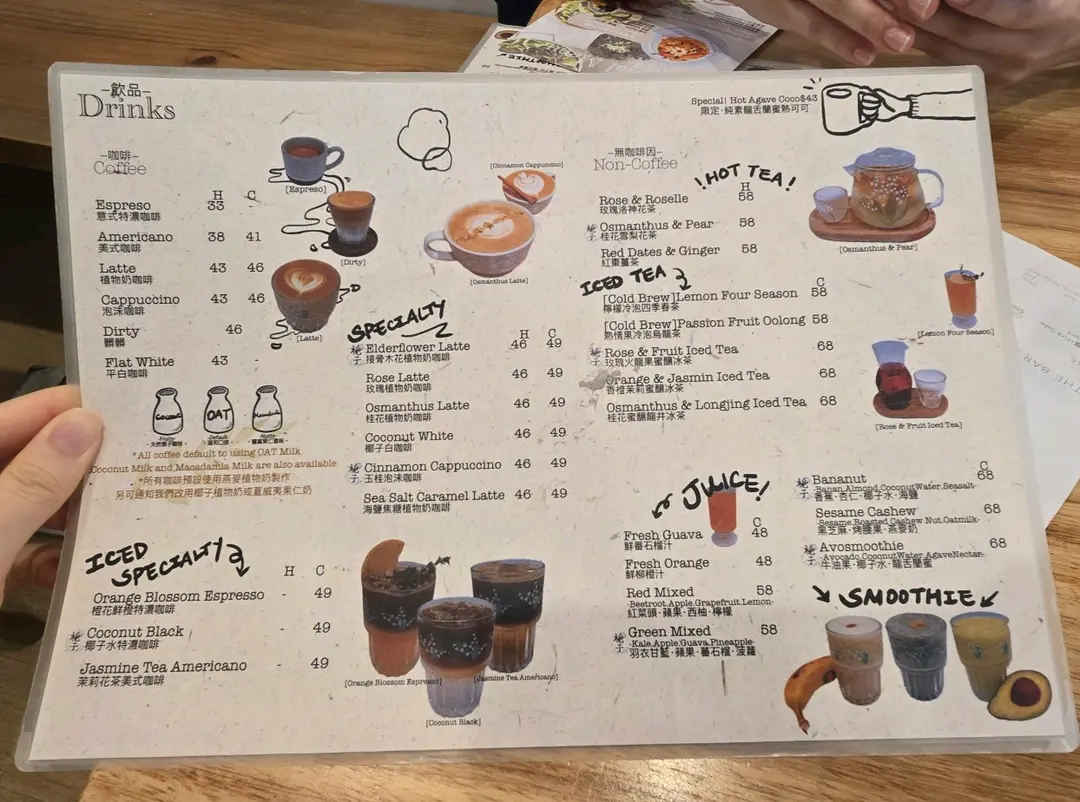 -飲品-
Drinks
-咖啡-
Coffee
H C
Espreso 33 -
意式特濃咖啡
Americano 38 41
美式咖啡
Latte 43 46
植物奶咖啡
Cappuccino 43 46
泡沫咖啡
Dirty 46
髒髒
Flat White 43 -
平白咖啡
[Espreso]
[Dirty]
[Latte]
Coconut OAT Macadamia
-Fruity- -Default- -Nutty-
*All coffee default to using OAT Milk
Coconut Milk and Macadamia Milk are also available
*所有咖啡預設使用燕麥植物奶製作
另可通知我們改用椰子植物奶或夏威夷果仁奶
ICED
SPECIALTY
H C
Orange Blossom Espresso - 49
橙花鮮橙特濃咖啡
Coconut Black - 49
椰子水特濃咖啡
Jasmine Tea Americano - 49
茉莉花茶美式咖啡
[Cinnamon Cappuccino]
[Osmanthus Latte]
SPECIALTY
H C
Elderflower Latte 46 49
接骨木花植物奶咖啡
Rose Latte 46 49
玫瑰植物奶咖啡
Osmanthus Latte 46 49
桂花植物奶咖啡
Coconut White 46 49
椰子白咖啡
Cinnamon Cappuccino 46 49
玉桂泡沫咖啡
Sea Salt Caramel Latte 46 49
海鹽焦糖植物奶咖啡
[Orange Blossom Espresso]
[Jasmine Tea Americano]
[Coconut Black]
Special! Hot Agave Coco$43
限定·純素龍舌蘭蜜熱可可
-無咖啡因-
Non-Coffee
!HOT TEA!
H
Rose & Roselle 58
玫瑰洛神花茶
Osmanthus & Pear 58
桂花雪梨花茶
Red Dates & Ginger 58
紅棗薑茶
[Osmanthus & Pear]
ICED TEA
C
[Cold Brew]Lemon Four Season 58
檸檬冷泡四季春茶
[Cold Brew]Passion Fruit Oolong 58
熱情果冷泡烏龍茶
Rose & Fruit Iced Tea 68
玫瑰火龍果蜜釀冰茶
Orange & Jasmin Iced Tea 68
香橙茉莉蜜釀冰茶
Osmanthus & Longjing Iced Tea 68
桂花蜜釀龍井冰茶
[Lemon Four Season]
[Rose & Fruit Iced Tea]
JUICE!
C
Fresh Guava 48
鮮番石榴汁
Fresh Orange 48
鮮柳橙汁
Red Mixed 58
-Beetroot.Apple.Grapefruit.Lemon-
紅菜頭·蘋果·西柚·檸檬
Green Mixed 58
-Kale.Apple.Guava.Pineapple-
羽衣甘藍·蘋果·番石榴·菠蘿
C
Bananut 68
-Banan.Almond.CoconutWater.Seasalt-
香蕉·杏仁·椰子水·海鹽
Sesame Cashew 68
-Sesame.Roasted Cashew Nut.Oatmilk-
黑芝麻·烤腰果·燕麥奶
Avosmoothie 68
-Avocado.CoconutWater.AgaveNectar-
牛油果·椰子水·龍舌蘭蜜
SMOOTHIE
THE BA